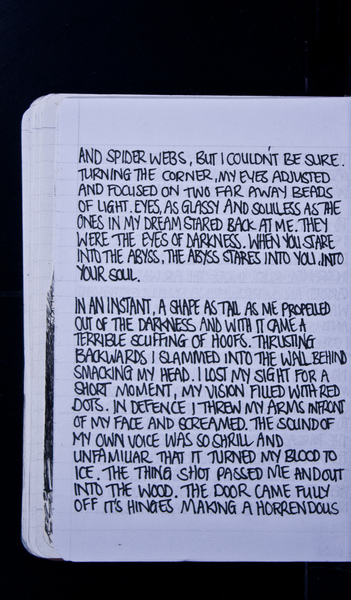 AND SPIDER WEBS, BUT I COULDN'T BE SURE.
TURNING THE CORNER, MY EYES ADJUSTED
AND FOCUSED ON TWO FAR AWAY BEADS
OF LIGHT. EYES, AS GLASSY AND SOULLESS AS THE
ONES IN MY DREAM STARED BACK AT ME. THEY
WERE THE EYES OF DARKNESS. WHEN YOU STARE
INTO THE ABYSS, THE ABYSS STARES INTO YOU, INTO
YOUR SOUL.
IN AN INSTANT, A SHAPE AS TALL AS ME PROPELLED
OUT OF THE DARKNESS AND WITH IT CAME A
TERRIBLE SCUFFING OF HOOFS. THRUSTING
BACKWARDS I SLAMMED INTO THE WALL BEHIND
SMACKING MY HEAD. I LOST MY SIGHT FOR A
SHORT MOMENT, MY VISION FILLED WITH RED
DOTS. IN DEFENCE I THREW MY ARMS INFRONT
OF MY FACE AND SCREAMED. THE SOUND OF
MY OWN VOICE WAS SO SHRILL AND
UNFAMILIAR THAT IT TURNED MY BLOOD TO
ICE. THE THING SHOT PASSED ME AND OUT
INTO THE WOOD. THE DOOR CAME FULLY
OFF IT'S HINGES MAKING A HORRENDOUS